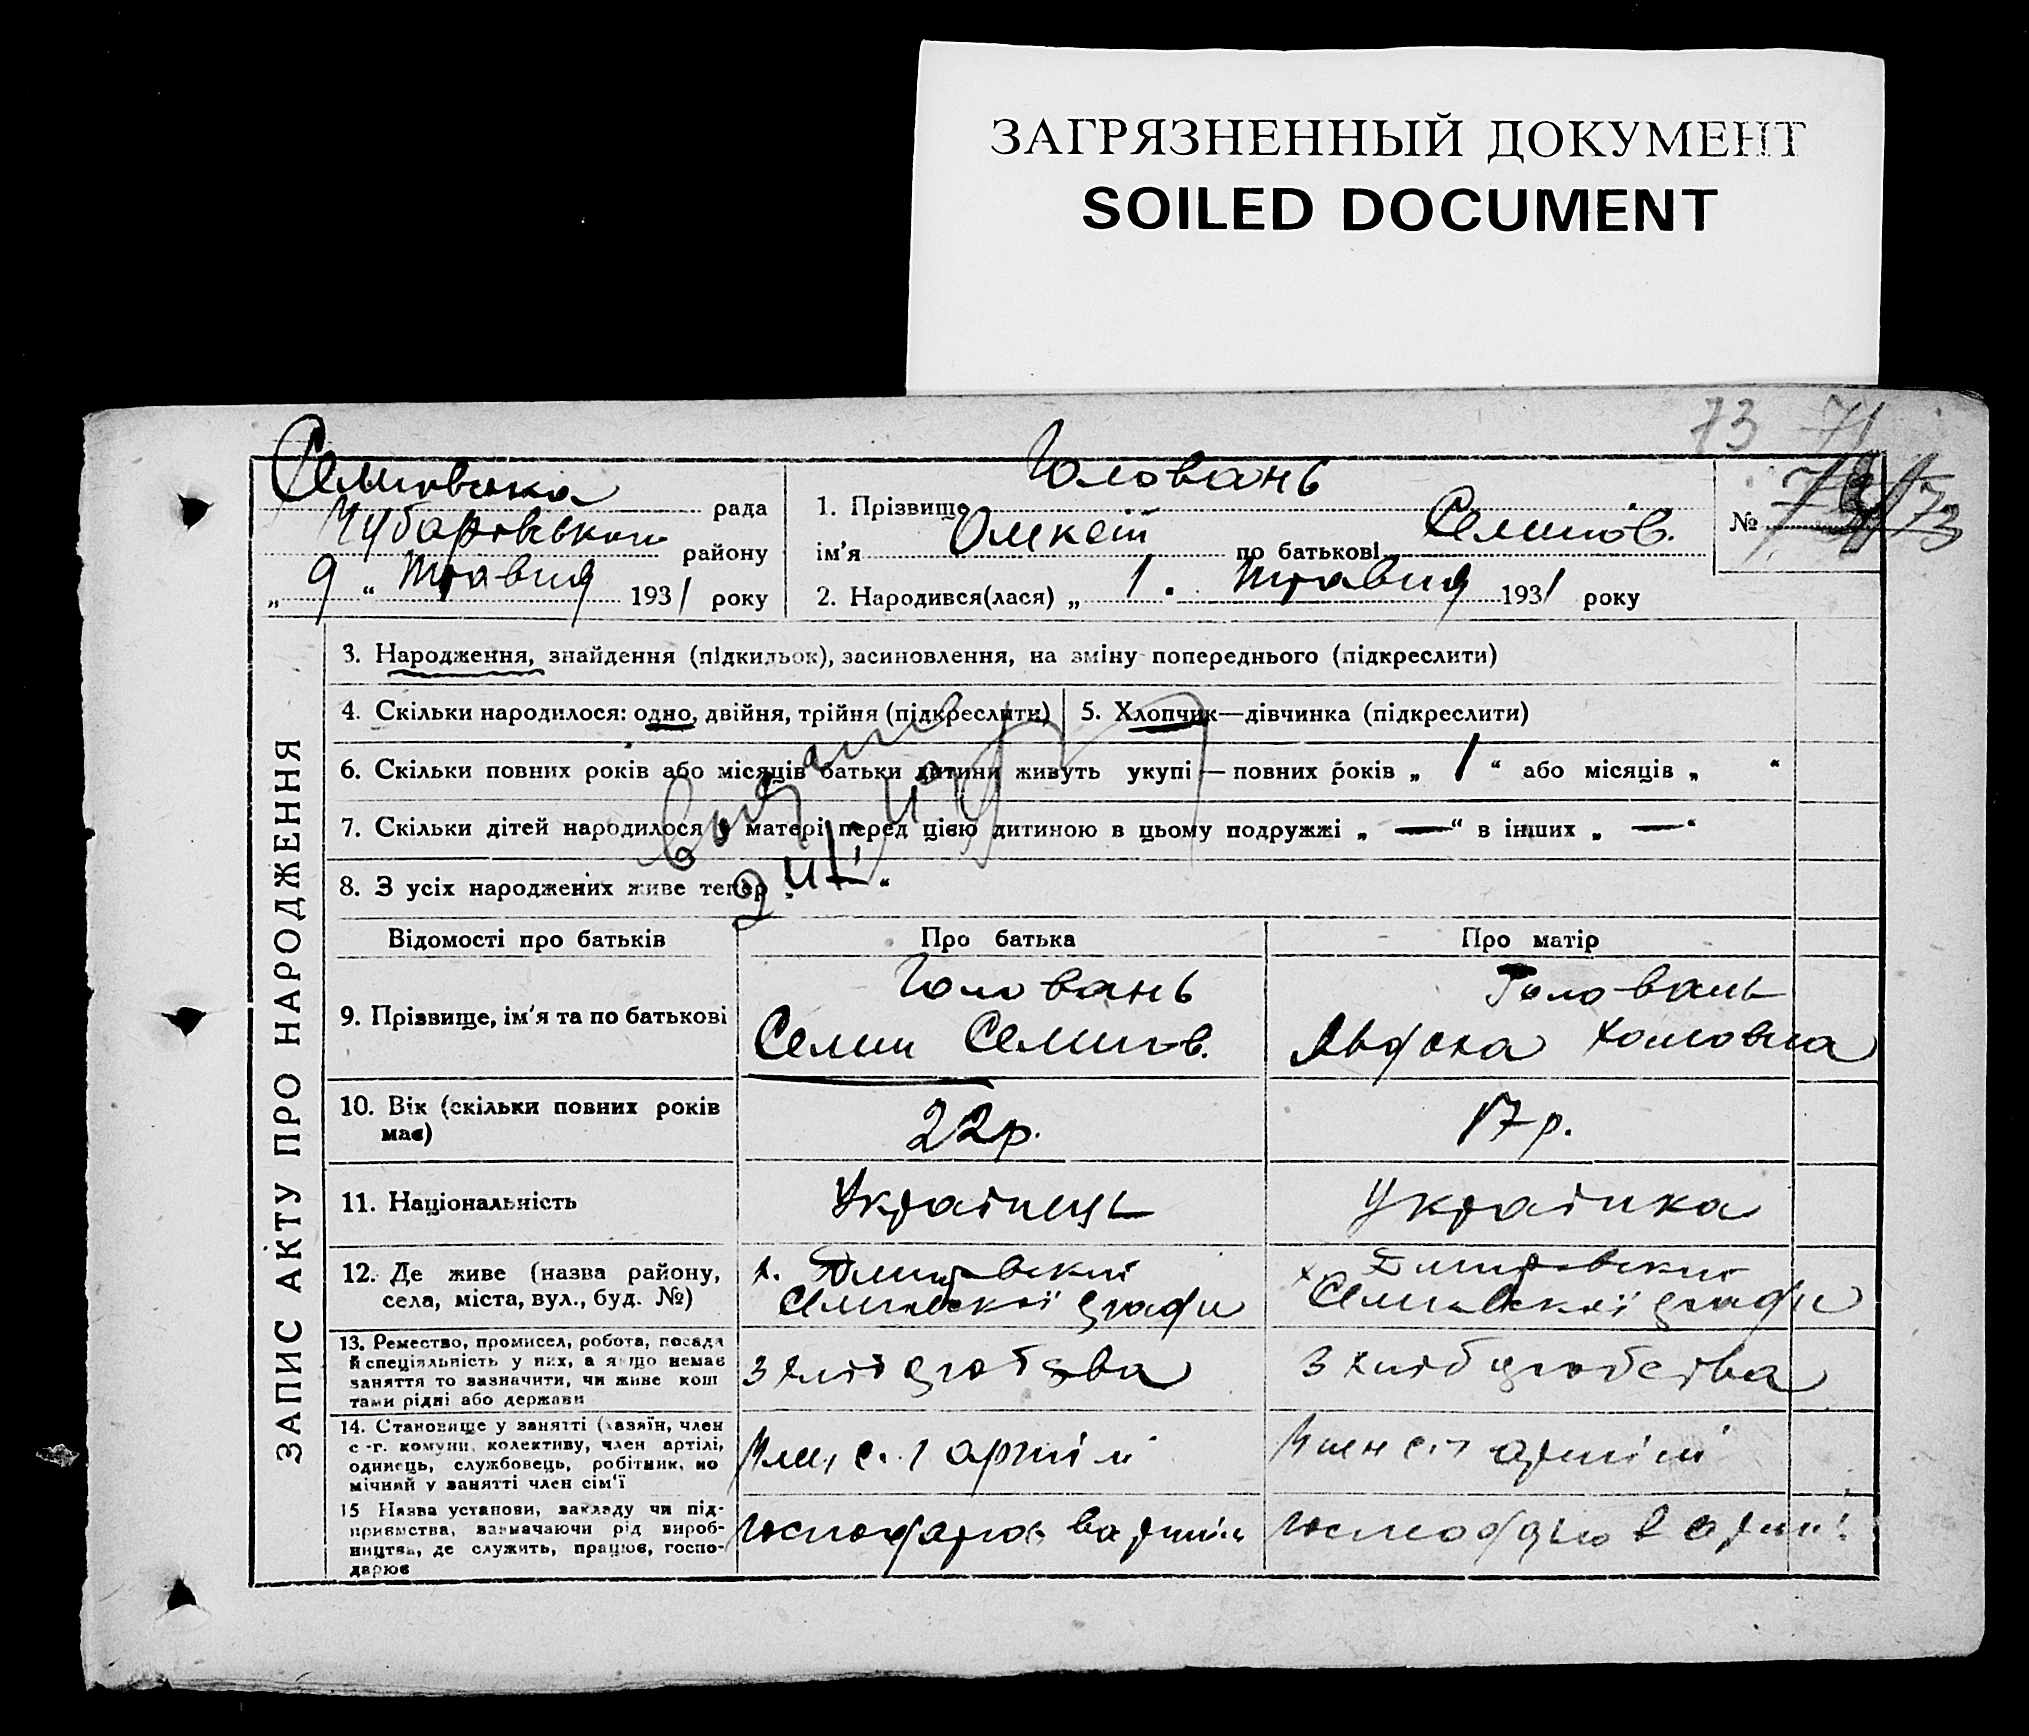 ЗАГРЯЗНЕННЫЙ ДОКУМЕНТ
SOILED DOCUMENT
73 71
Семовська рада
Чубаровського району
„ 9 “ травня 1931 року
1. Прізвище Головань
ім’я Олексій по батькові Семенов.
№ 73
2. Народився(лася) „ 1. травня 1931 року
ЗАПИС АКТУ ПРО НАРОДЖЕННЯ
3. Народження, знайдення (підкидьок), засиновлення, на зміну попереднього (підкреслити)
4. Скільки народилося: одно, двійня, трійня (підкреслити)
5. Хлопчик—дівчинка (підкреслити)
6. Скільки повних років або місяців батьки дитини живуть укупі — повних років „ 1 “ або місяців „ “
7. Скільки дітей народилося у матері перед цією дитиною в цьому подружжі „ — “ в інших „ — “
8. З усіх народжених живе тепер „ “
Відомості про батьків
Про батька
Про матір
9. Прізвище, ім’я та по батькові
Головань
Семен Семенов.
Головань
Явдоха Хомовна
10. Вік (скільки повних років
має)
22р.
17р.
11. Національність
Українець
Українка
12. Де живе (назва району,
села, міста, вул., буд. №)
х.
ради
х.
ради
13. Ремество, промисел, робота, посада
й спеціяльність у них, а якщо немає
заняття то зазначити, чи живе кош
тами рідні або держави
З хліборобства
З хліборобства
14. Становище у занятті (хазяїн, член
с -г. комуни, колективу, член артілі,
одинець, службовець, робітник, по
мічний у занятті член сім’ї
Член с. г артілі
Член с.г артілі
15 Назва установи, закладу чи під-
приємства, зазначаючи рід вироб-
ництва, де служить, працює, госпо-
дарює
господарює в артілі
господарює в артілі